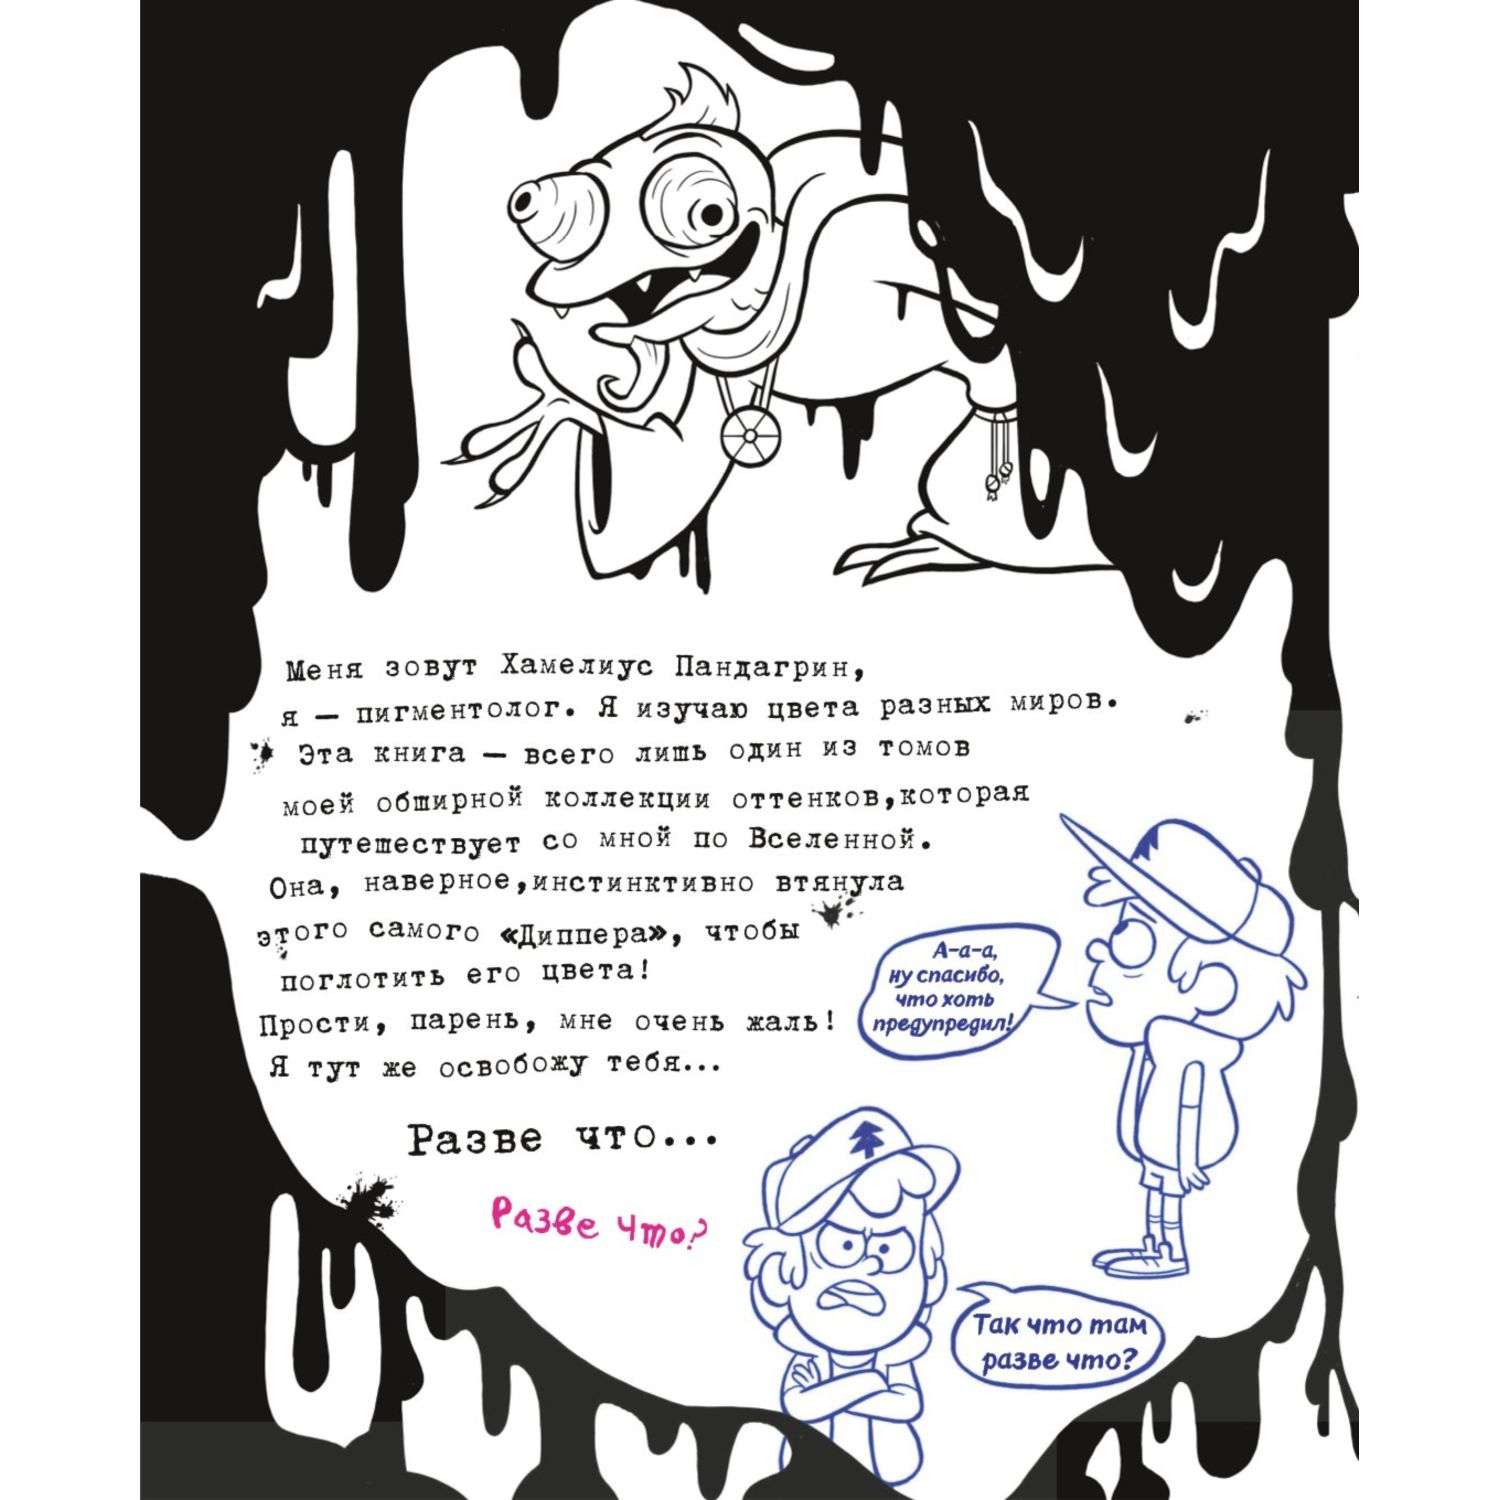 Меня зовут Хамелиус Пандагрин,
я — пигментолог. Я изучаю цвета разных миров.
Эта книга — всего лишь один из томов
моей обширной коллекции оттенков,которая
путешествует со мной по Вселенной.
Она, наверное,инстинктивно втянула
этого самого «Диппера», чтобы
поглотить его цвета!
Прости, парень, мне очень жаль!
Я тут же освобожу тебя...
А-а-а,
ну спасибо,
что хоть
предупредил!
Разве что...
Разве что?
Так что там
разве что?